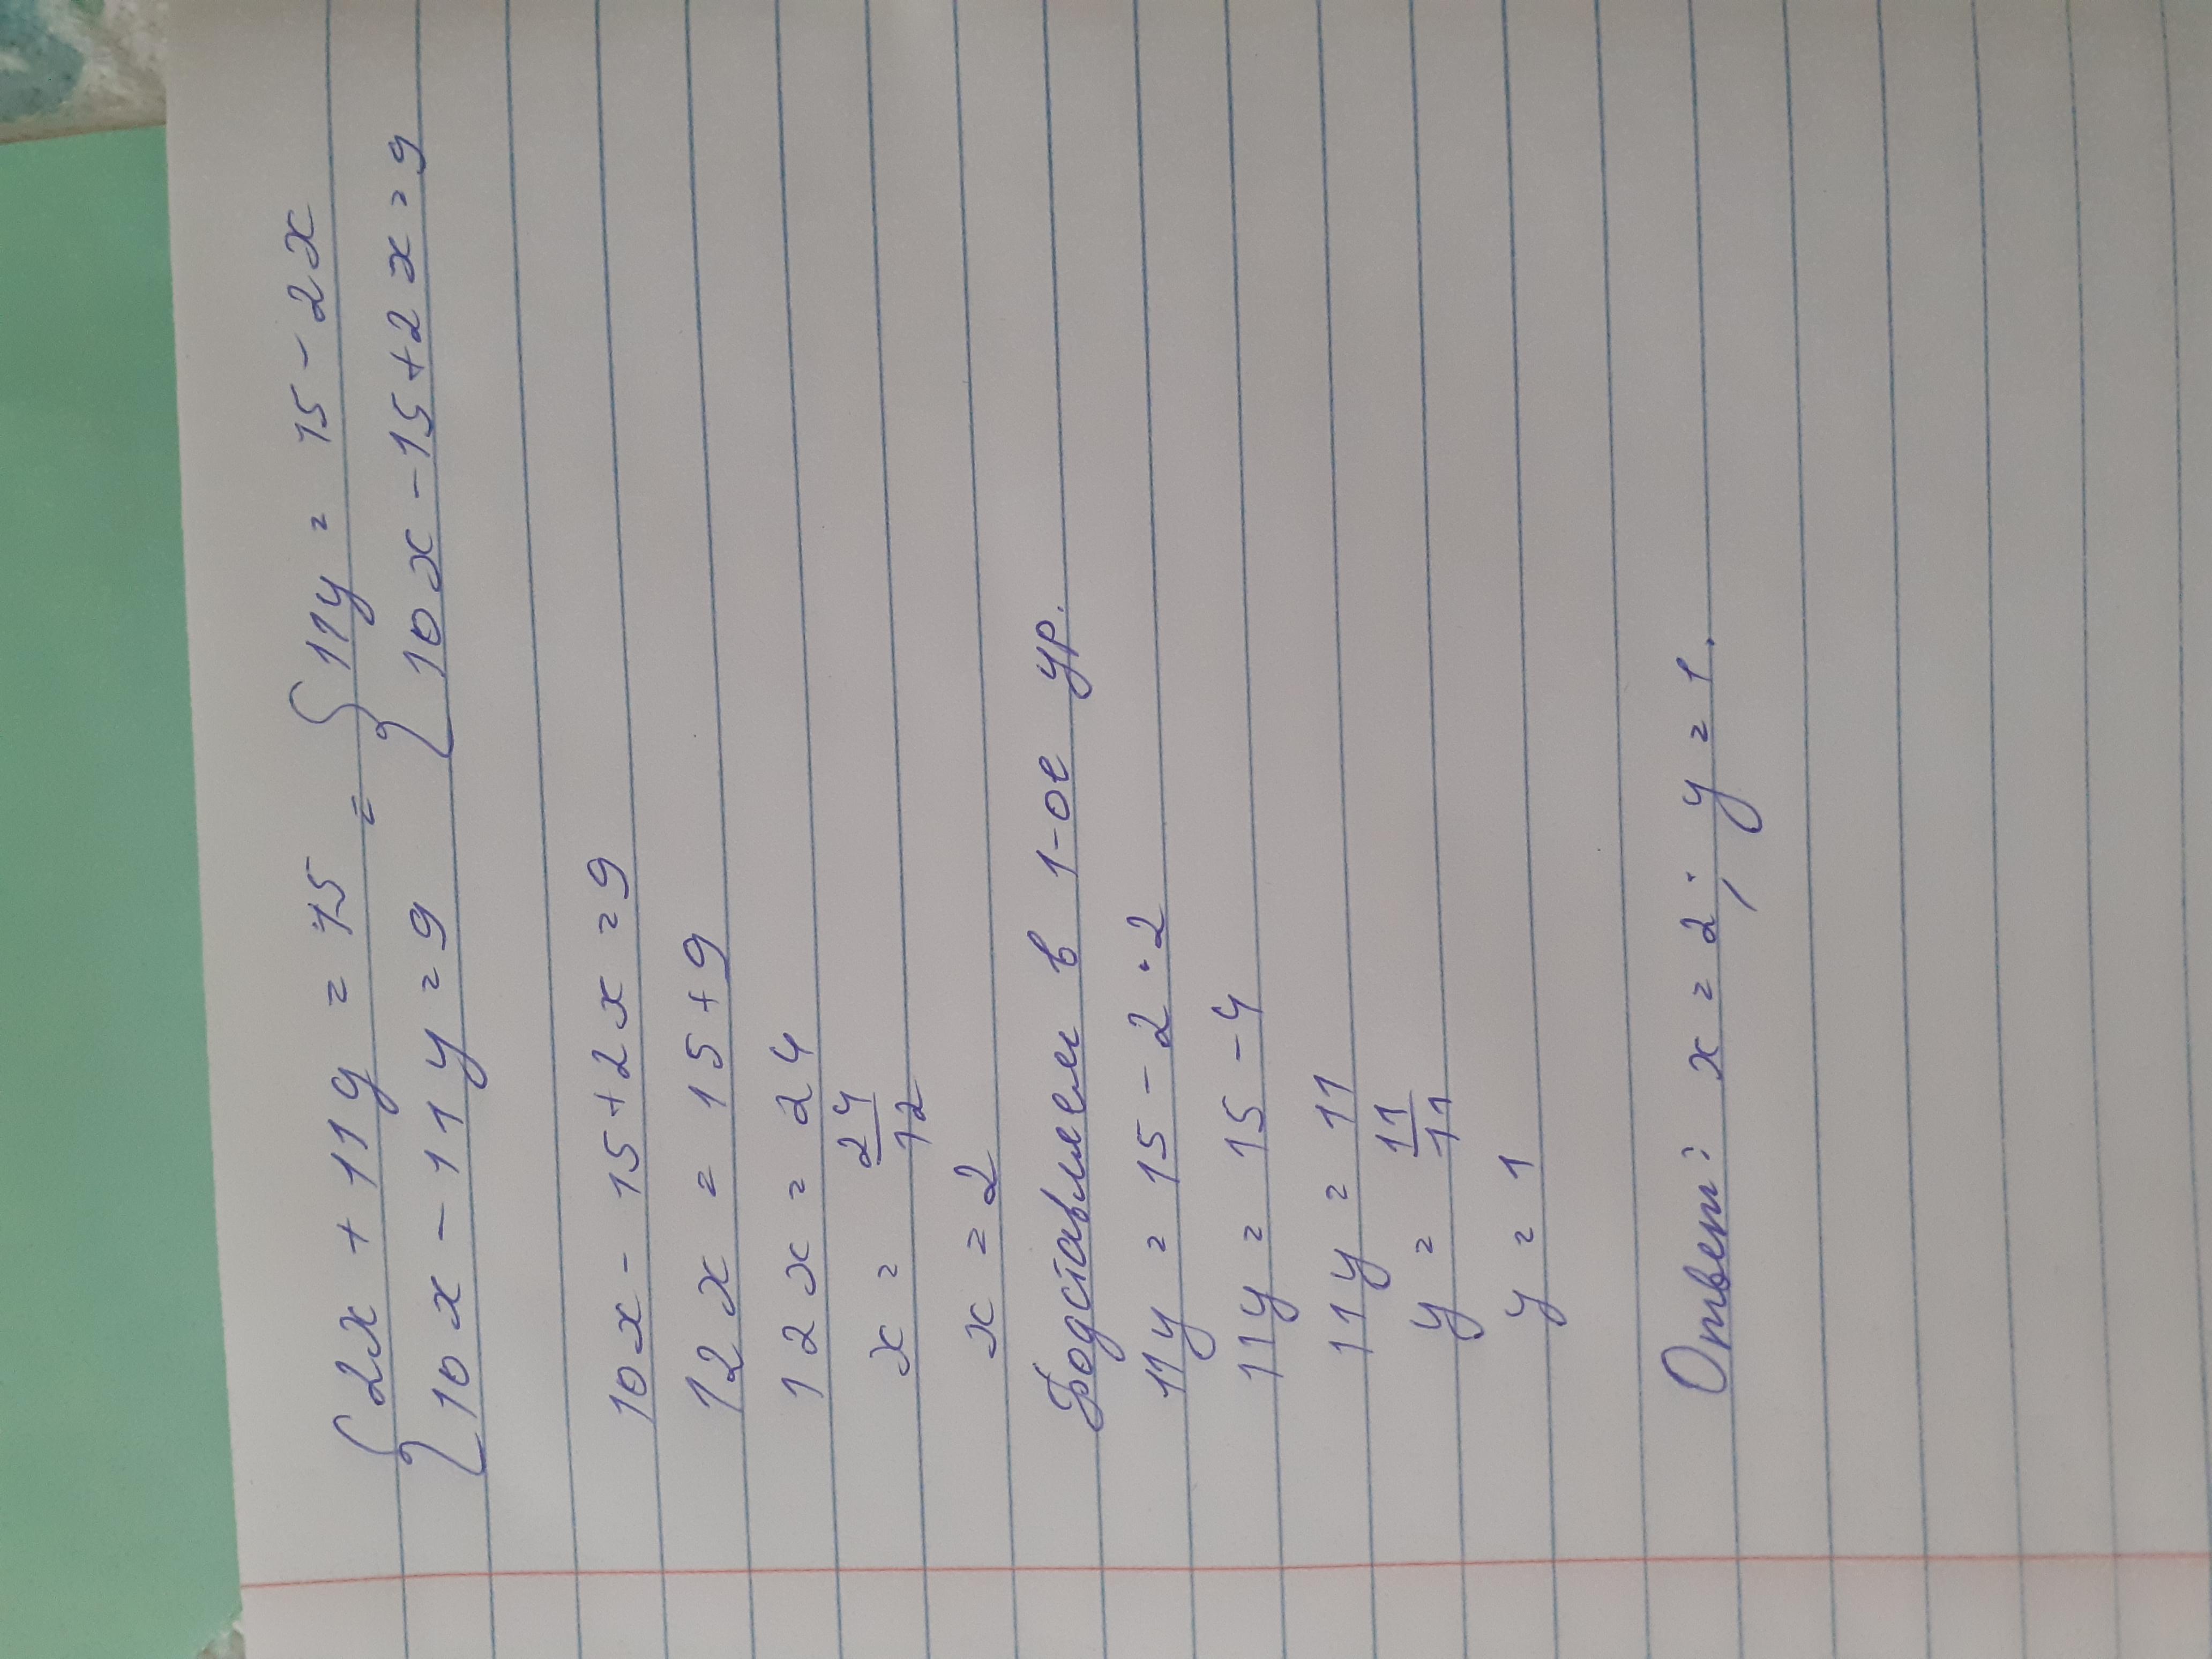 {2x + 11y = 15 = {11y = 15 - 2x
{10x - 11y = 9 {10x - 15 + 2x = 9
10x - 15 + 2x = 9
12x = 15 + 9
12x = 24
x = 24/12
x = 2
Подставляем в 1-ое ур.
11y = 15 - 2 · 2
11y = 15 - 4
11y = 11
y = 11/11
y = 1
Ответ: x = 2; y = 1.